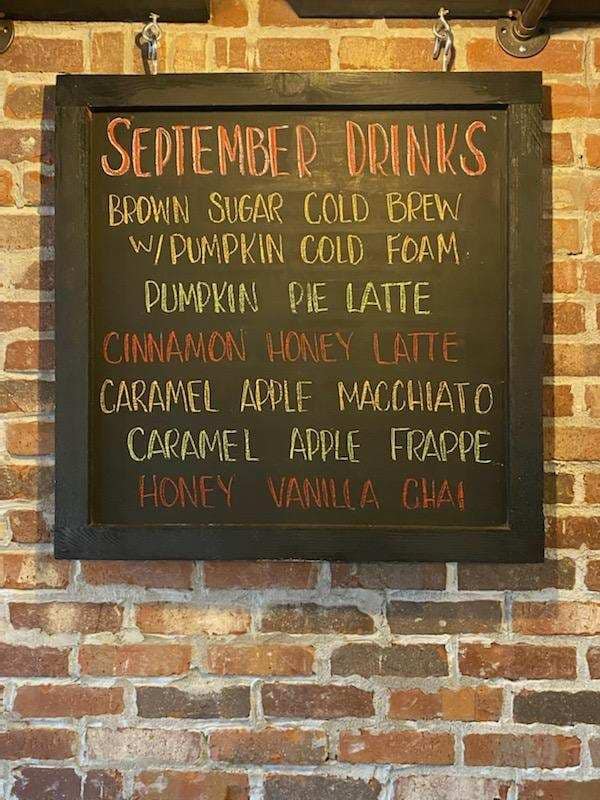 SEPTEMBER DRINKS
BROWN SUGAR COLD BREW
W/ PUMPKIN COLD FOAM
PUMPKIN PIE LATTE
CINNAMON HONEY LATTE
CARAMEL APPLE MACCHIATO
CARAMEL APPLE FRAPPE
HONEY VANILLA CHAI